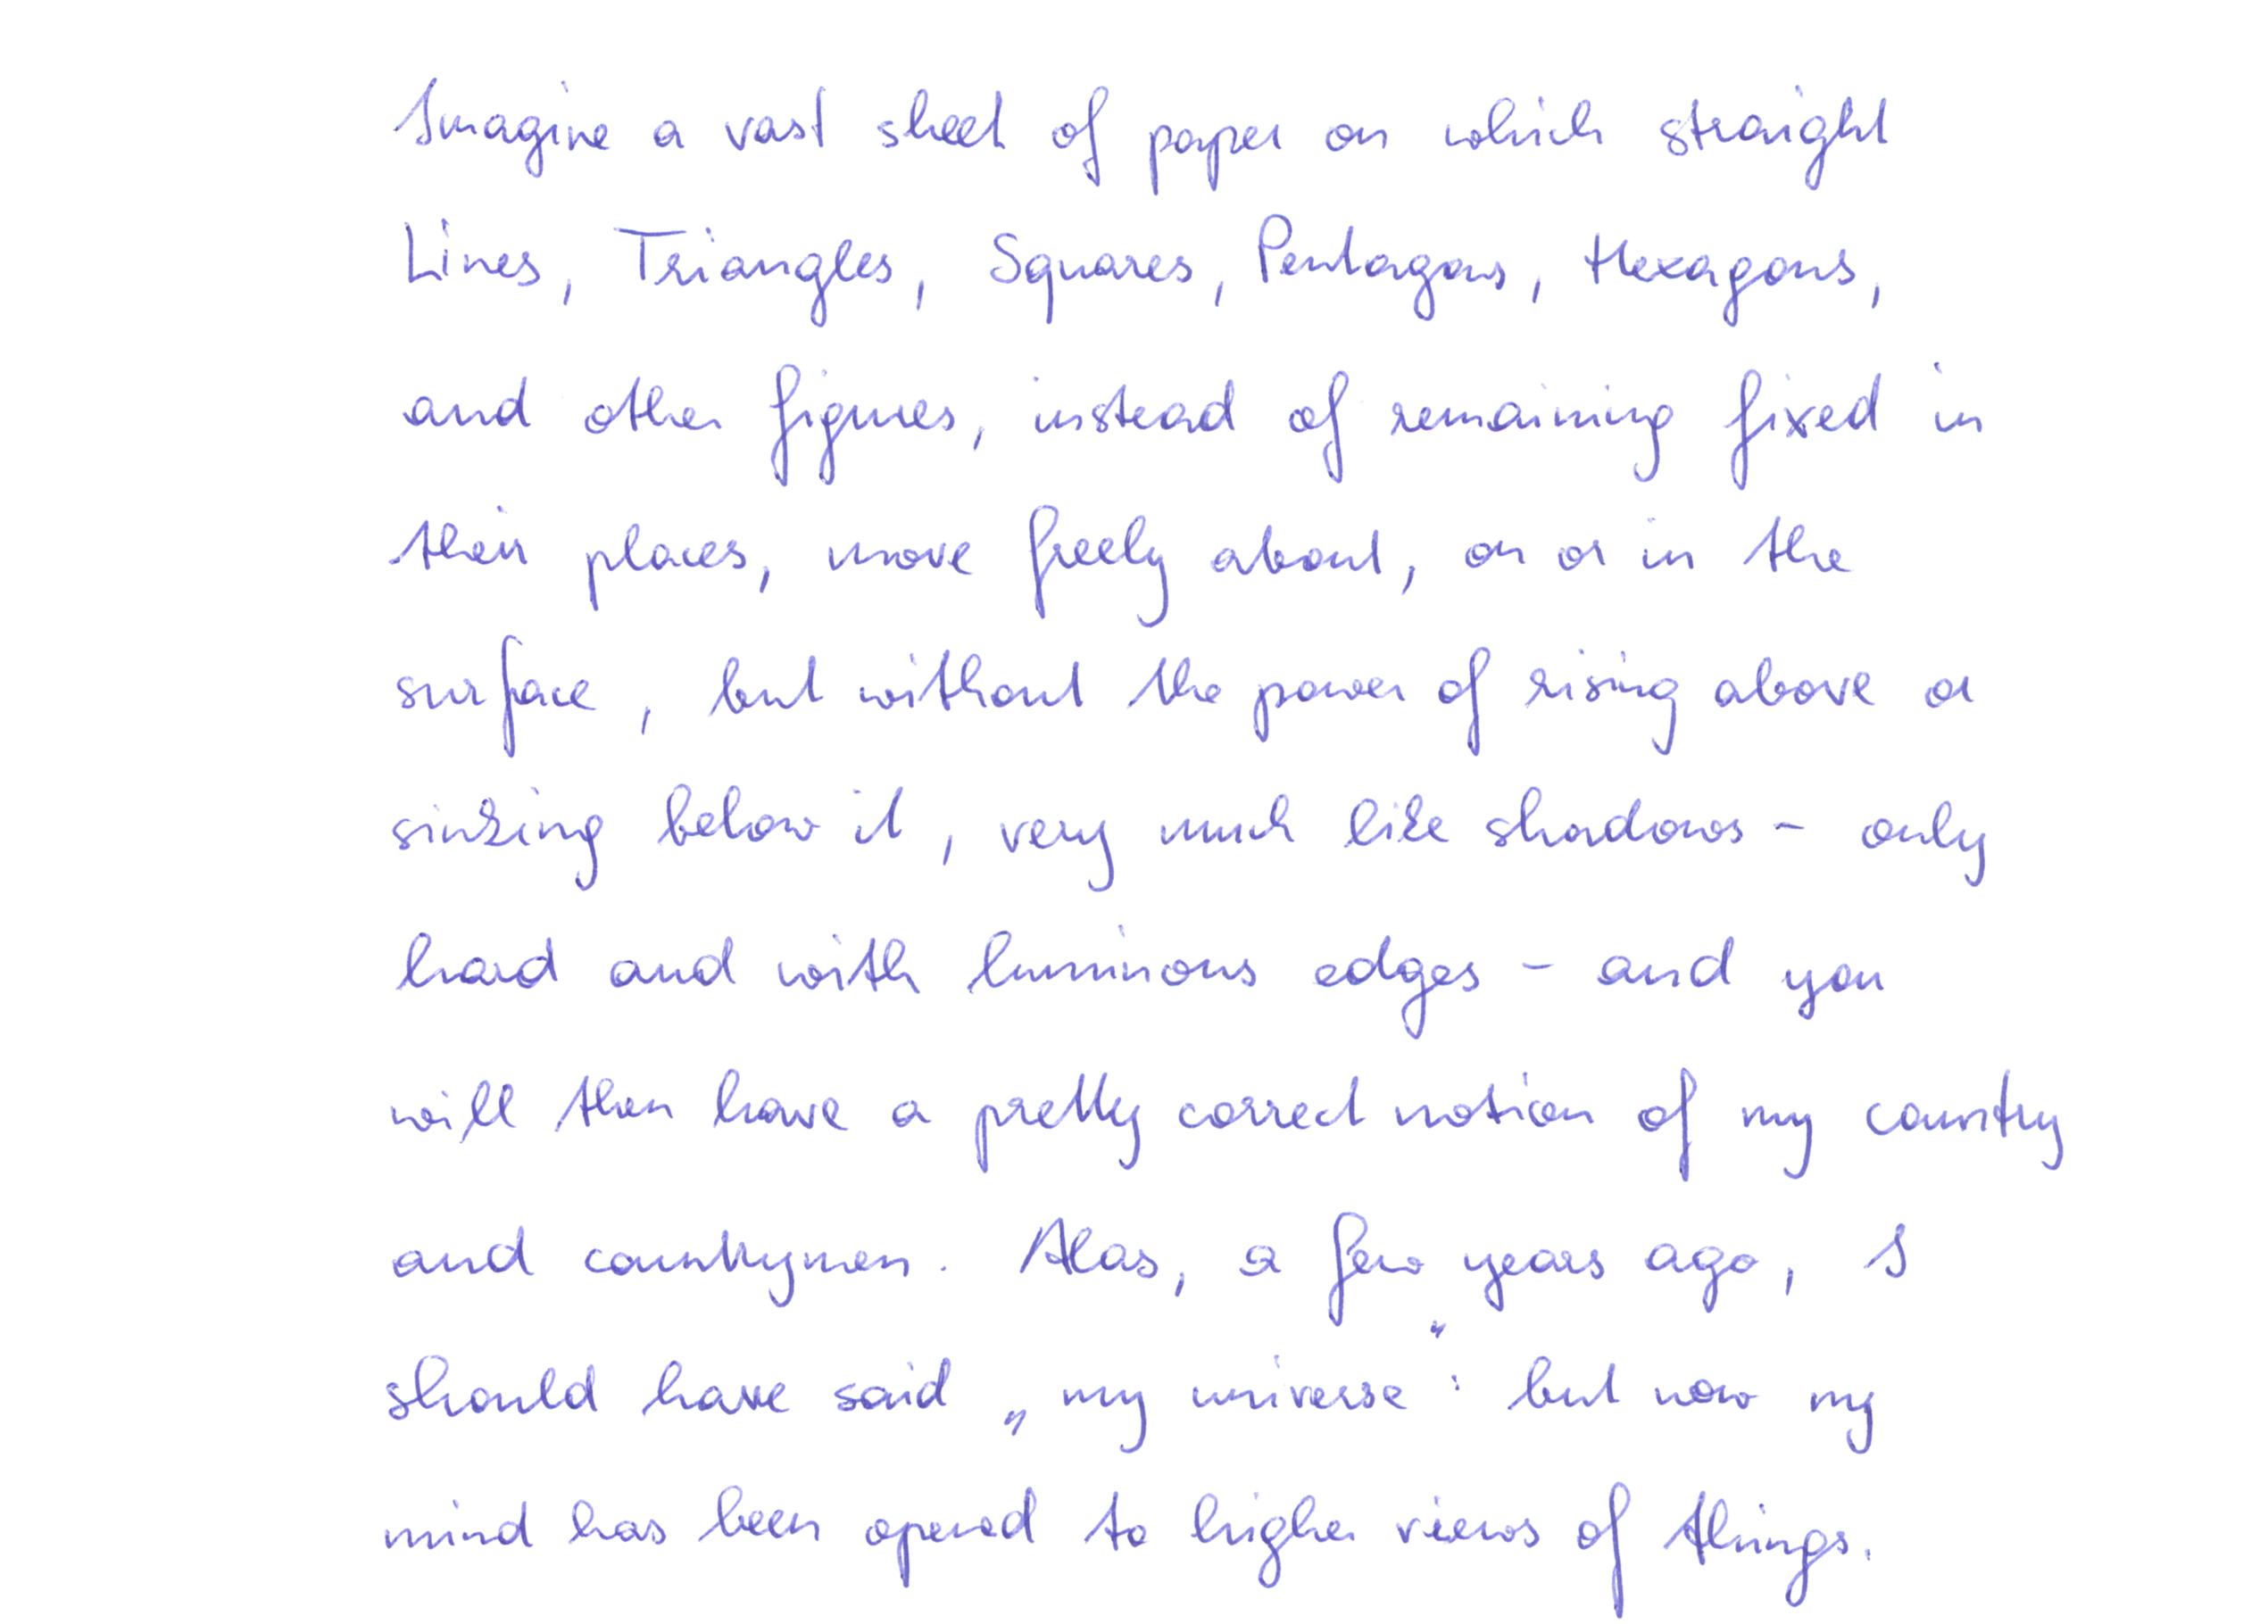 Imagine a vast sheet of paper on which straight
Lines, Triangles, Squares, Pentagons, Hexagons,
and other figures, instead of remaining fixed in
their places, move freely about, on or in the
surface, but without the power of rising above or
sinking below it, very much like shadows - only
hard and with luminous edges - and you
will then have a pretty correct notion of my country
and countrymen. Alas, a few years ago, I
should have said „my universe": but now my
mind has been opened to higher views of things.